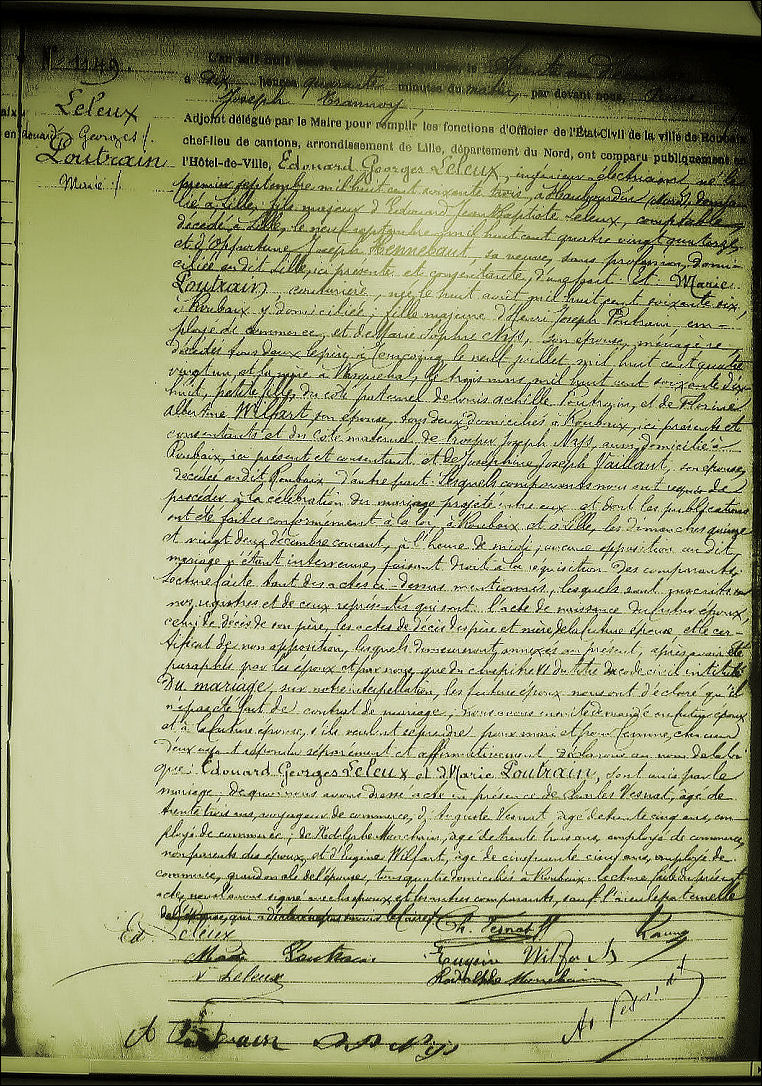 N° 1149.
Leleux
Edouard Georges /.
Poutrain
Marie /.
L'an mil huit cent le trente un Décembre
à dix heures quarante minutes du matin, par devant nous,
Joseph Trannoy,
Adjoint délégué par le Maire pour remplir les fonctions d'Officier de l'État-Civil de la ville de Roubaix
chef-lieu de cantons, arrondissement de Lille, département du Nord, ont comparu publiquement en
l'Hôtel-de-Ville, Edouard Georges Leleux, ingénieur électricien, né le
premier septembre mil huit cent soixante trois, à Haubourdin (Nord), domici-
lié à Lille, fils majeur d'Edouard Jean Baptiste Leleux, comptable,
décédé à Lille, le neuf septembre mil huit cent quatre vingt quatorze,
et d'Opportune Joseph Hennebaut, sa veuve, sans profession, domi-
ciliée audit Lille, ici présente et consentante, d'une part. Et Marie
Poutrain, couturière, née le huit août mil huit cent soixante six,
à Roubaix y domiciliée; fille majeure d'Henri Joseph Poutrain, em-
ployé de commerce, et de Marie Sophie Nys, son épouse, ménagère,
décédés tous deux le père à Tourcoing le neuf juillet mil huit cent quatre
vingt un, et sa mère à Wasquehal, le trois mars mil huit cent soixante dix
huit, petite fille du côté paternel de Louis Achille Poutrain, et de Florine
Albertine Wilfart, son épouse, tous deux domiciliés à Roubaix, ici présents et
consentants et du côté maternel de Joseph Nys, aussi domicilié à
Roubaix, ici présent et consentant et de Joséphine Joseph Vaillant, son épouse,
décédée audit Roubaix d'autre part. Lesquels comparants nous ont requis de
procéder à la célébration du mariage projeté entre eux et dont les publications
ont été faites conformément à la loi, à Roubaix et à Lille, les dimanches quinze
et vingt deux décembre courant, à l'heure de midi; aucune opposition au dit
mariage n'étant intervenue, faisant droit à la réquisition des comparants,
lecture faite tant des actes ci-dessus mentionnés, lesquels sont inscrits en
nos registres et de ceux représentés qui sont l'acte de naissance du futur époux,
celui de décès de son père, les actes de décès des père et mère de la future épouse et le cer-
tificat de non opposition, lesquels demeureront annexés au présent, après avoir été
paraphés par les époux et par nous, que du chapitre VI du titre du code civil intitulé
Du mariage, sur notre interpellation, les futurs époux nous ont déclaré qu'il
n'a pas été fait de contrat de mariage; nous avons ensuite demandé au futur époux
et à la future épouse, s'ils veulent se prendre pour mari et pour femme, chacun
d'eux ayant répondu séparément et affirmativement déclarons au nom de la loi
que: Edouard Georges Leleux et Marie Poutrain, sont unis par le
mariage: de quoi nous avons dressé acte en présence de Charles Vesnat, âgé de
trente trois ans, voyageur de commerce, d'Auguste Vesnat âgé de trente cinq ans, em-
ployé de commerce; de Rodolphe Monchain, âgé de trente trois ans, employé de commerce,
non parents des époux, et d'Eugène Wilfart, âgé de cinquante cinq ans, employé de
commerce, grand oncle de l'épouse, tous quatre domiciliés à Roubaix. Lecture faite du présent
acte, nous l'avons signé avec les époux et les autres comparants, sauf l'aïeule paternelle
de l'épouse, qui a déclaré ne pas savoir le faire /.
Ed Leleux Ch. Vesnat
Marie Poutrain Eugène Wilfart
Vve Leleux Rodolphe Monchain
A Poutrain Nys